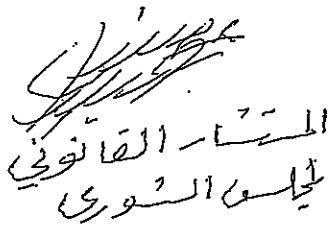 المستشار القانوني
لمجلس الشورى